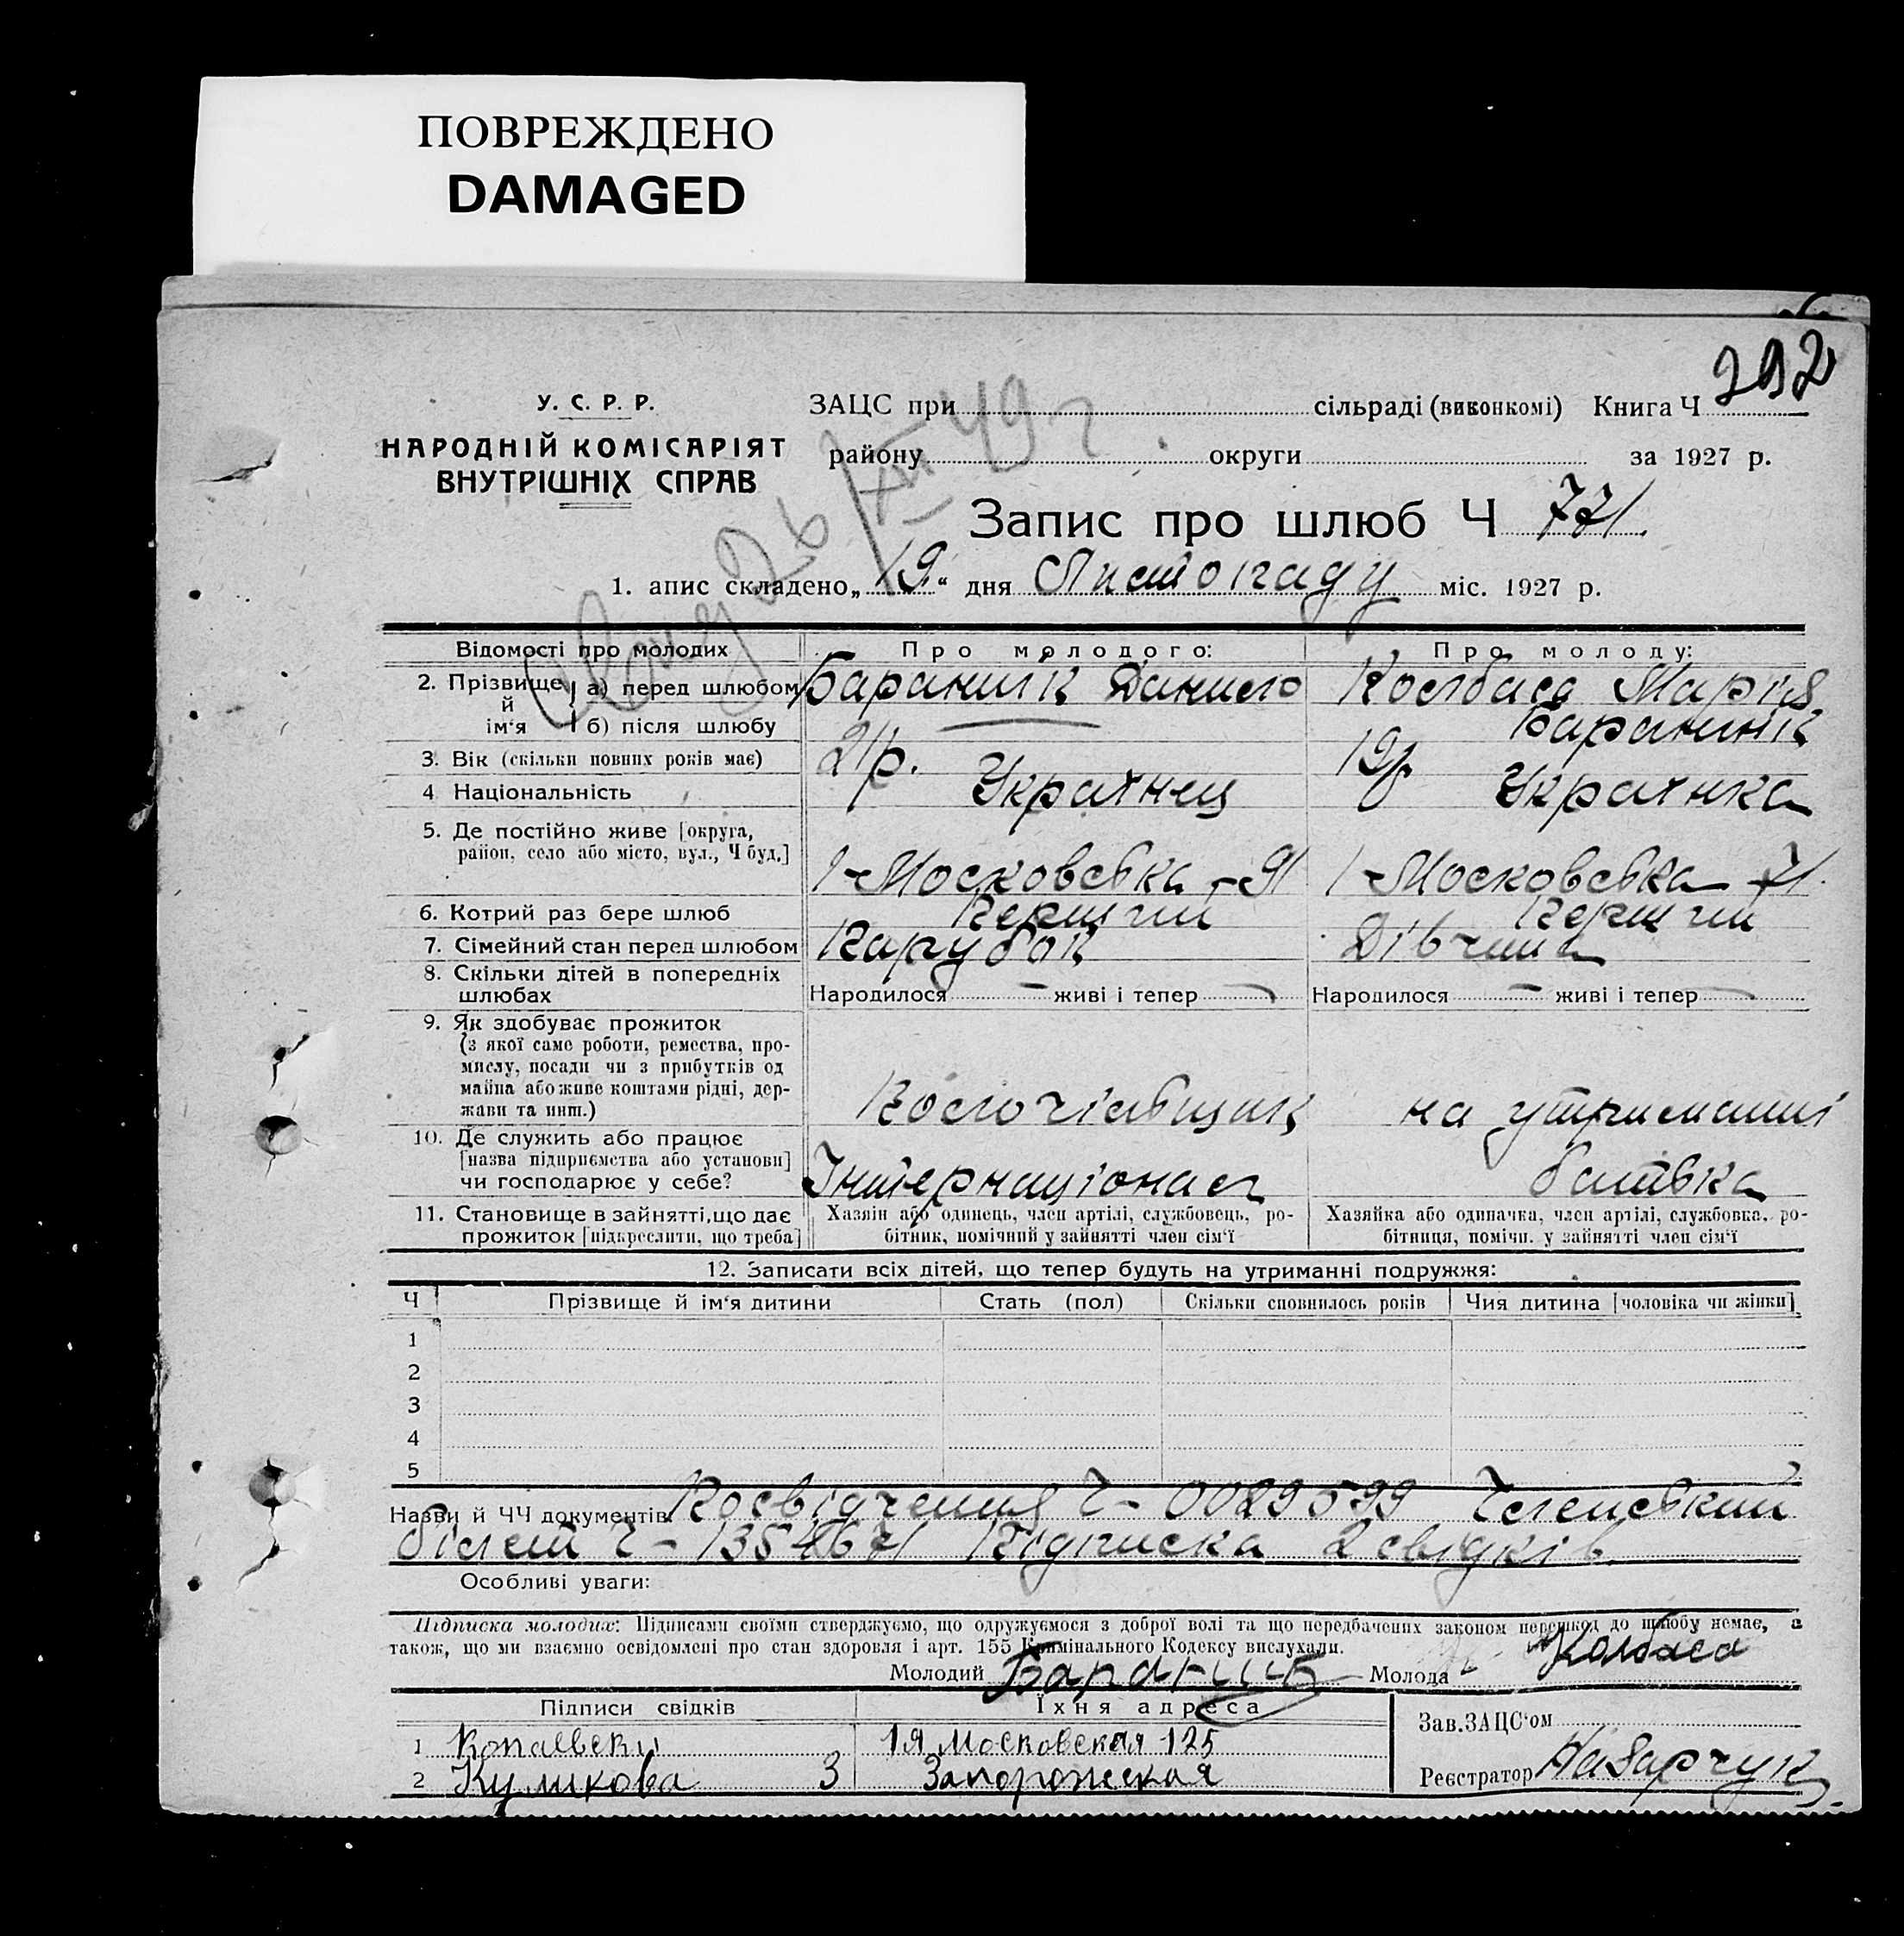 ПОВРЕЖДЕНО
DAMAGED
292
У. С. Р. Р.
НАРОДНІЙ КОМІСАРІЯТ
ВНУТРІШНІХ СПРАВ
ЗАЦС при сільраді (виконкомі) Книга Ч
району округи за 1927 р.
Запис про шлюб Ч 771
1. апис складено „19“ дня Листопаду міс. 1927 р.
26/XII 49 г.
Відомості про молодих Про молодого: Про молоду:
2. Прізвище й ім‘я а) перед шлюбом Бараник Данило Колбаса Марія
б) після шлюбу — Бараник
3. Вік (скільки повних років має) 21 р. 19 р
4 Національність Українец Українка
5. Де постійно живе [округа, район, село або місто, вул., Ч буд.] 1-Московська - 91 1-Московська - 71
6. Котрий раз бере шлюб Перший Перший
7. Сімейний стан перед шлюбом Парубок Дівчина
8. Скільки дітей в попередніх шлюбах Народилося — живі і тепер — Народилося — живі і тепер —
9. Як здобуває прожиток
(з якої саме роботи, ремества, про-
мислу, посади чи з прибутків од
майна або живе коштами рідні, дер-
жави та инш.) на утриманні
10. Де служить або працює
[назва підприємства або установи]
чи господарює у себе? Інтернаціонал батька
11. Становище в зайнятті, що дає прожиток [підкреслити, що треба]
Хазяїн або одинець, член артілі, службовець, ро-
бітник, помічний у зайнятті член сім‘ї
Хазяйка або одиначка, член артілі, службовка, ро-
бітниця, помічн. у зайнятті член сім‘ї
12. Записати всіх дітей, що тепер будуть на утриманні подружжя:
Ч Прізвище й ім‘я дитини Стать (пол) Скільки сповнилось років Чия дитина [чоловіка чи жінки]
1
2
3
4
5
Назви й ЧЧ документів: Посвідчення Ч - 0029599 Членський
білет Ч - Підписка 2 свідків
Особливі уваги:
Підписка молодих: Підписами своїми стверджуємо, що одружуємося з доброї волі та що передбачених законом перешкод до шлюбу немає, а
також, що ми взаємно освідомлені про стан здоровля і арт. 155 Кримінального Кодексу вислухали.
Молодий Бараник Молода Колбаса
Підписи свідків Їхня адреса
1 1я Московская 125
2 Куликова 3 Запорожская
Зав. ЗАЦС‘ом
Реєстратор Назарчук